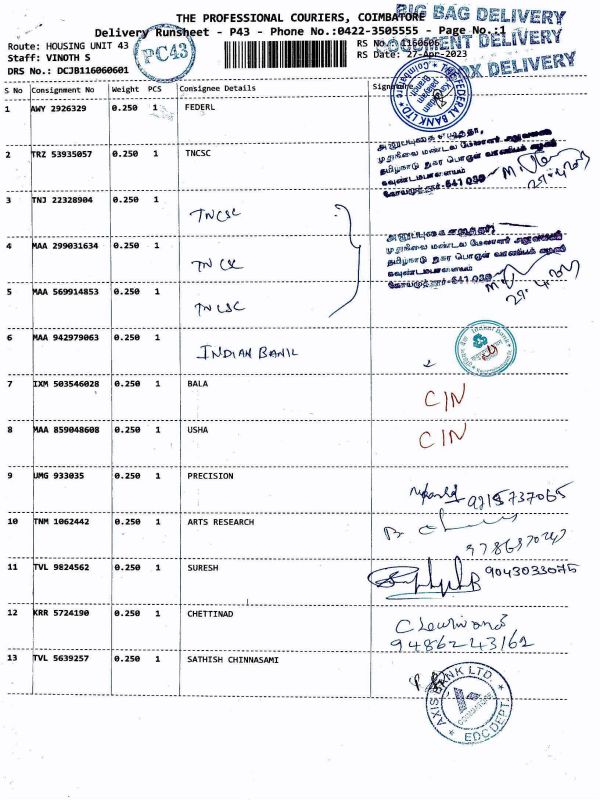 THE PROFESSIONAL COURIERS, COIMBATORE
BIG BAG DELIVERY
Delivery Runsheet - P43 - Phone No.:0422-3505555 - Page No.:1
Route: HOUSING UNIT 43
PC43
RS No.: 1160606
DOCUMENT DELIVERY
Staff: VINOTH S
RS Date: 27-Apr-2023
BOX DELIVERY
DRS No.: DCJB116060601
S No Consignment No Weight PCS Consignee Details Signature
THE FEDERAL BANK LTD.
1 AWY 2926329 0.250 1 FEDERL
2 TRZ 53935057 0.250 1 TNCSC
முதுநிலை மண்டல மேலாளர் அலுவலகம்
தமிழ்நாடு நுகர் பொருள் வாணிபக் கழகம்
கவுண்டம்பாளையம்
கோயமுத்தூர்-641 030
3 TNJ 22328904 0.250 1 TNCSC
4 MAA 299031634 0.250 1 TNCSC
முதுநிலை மண்டல மேலாளர் அலுவலகம்
தமிழ்நாடு நுகர் பொருள் வாணிபக் கழகம்
கவுண்டம்பாளையம்
கோயமுத்தூர்-641 030
5 MAA 569914853 0.250 1 TNCSC
6 MAA 942979063 0.250 1 INDIAN BANK
Indian Bank
7 IXM 503546028 0.250 1 BALA C/N
8 MAA 859048608 0.250 1 USHA C/N
9 UMG 933035 0.250 1 PRECISION 9215737065
10 TNM 1062442 0.250 1 ARTS RESEARCH
11 TVL 9824562 0.250 1 SURESH 9043033075
12 KRR 5724190 0.250 1 CHETTINAD
9486243162
13 TVL 5639257 0.250 1 SATHISH CHINNASAMI
AXIS BANK LTD.
COIMBATORE
EDC DEPT.